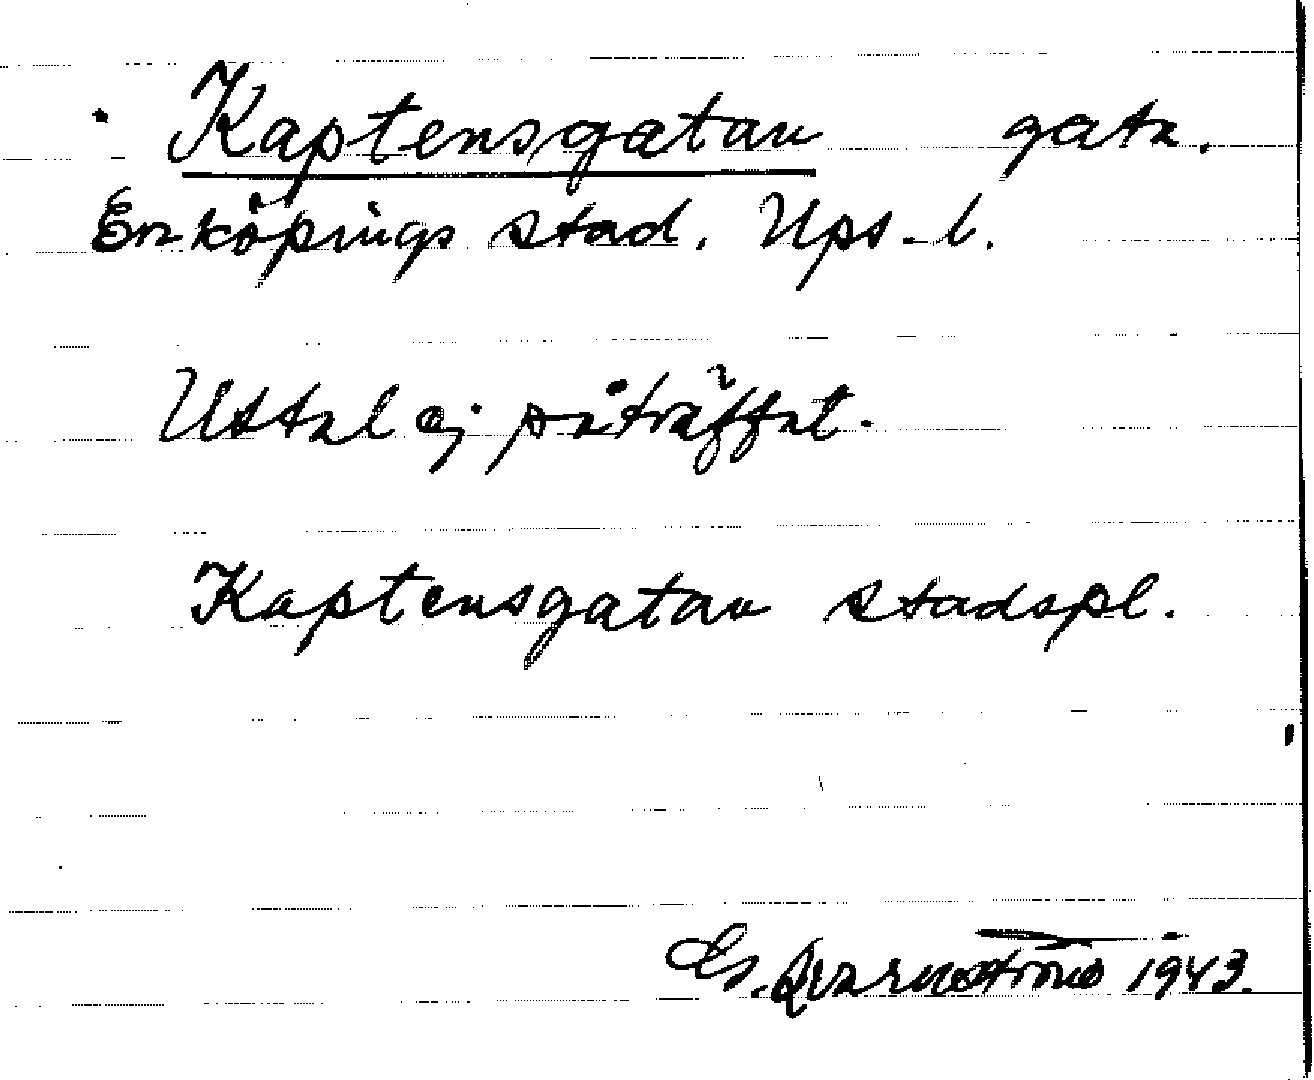 Kaptensgatan gata.
Enköpings stad. Ups. l.
Uttal ej påträffat.
Kaptensgatan stadspl.
G. Qvarnström 1943.